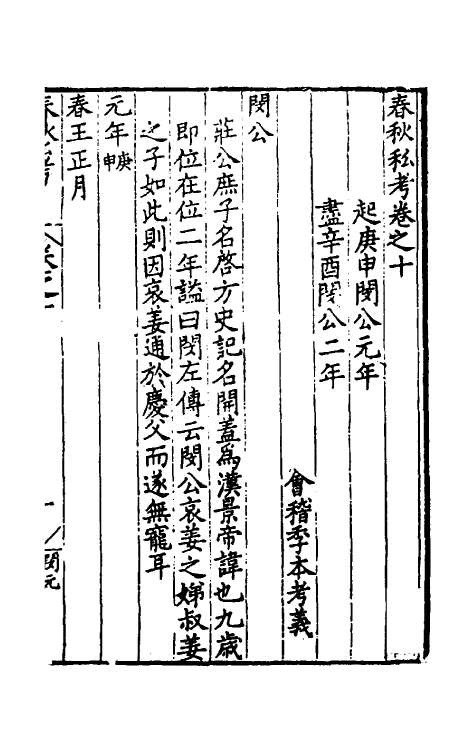 春秋私考卷之十
起庚申閔公元年
盡辛酉閔公二年
會稽季本考義
閔公
莊公庶子名啓方史記名開蓋爲漢景帝諱也九歲
即位在位二年諡曰閔左傳云閔公哀姜之娣叔姜
之子如此則因哀姜通於慶父而遂無寵耳
元年庚申
春王正月
閔元